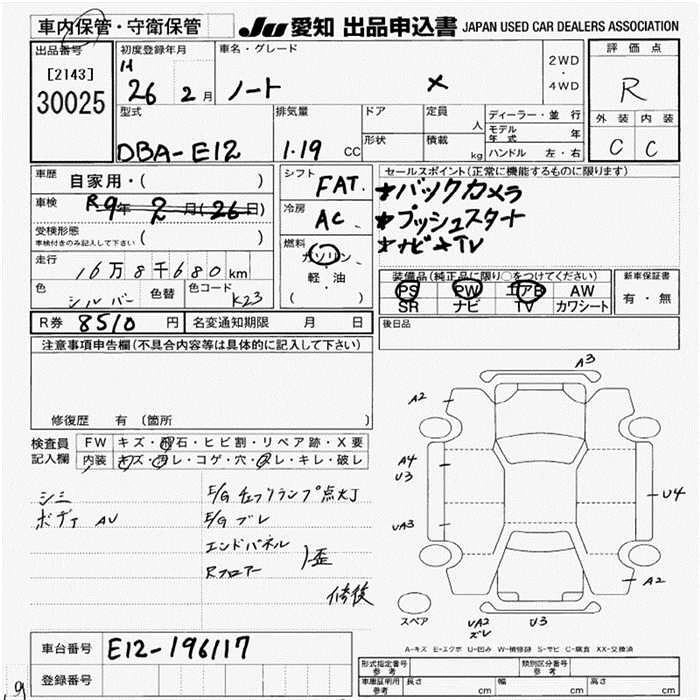 車内保管・守衛保管
JU 愛知 出品申込書 JAPAN USED CAR DEALERS ASSOCIATION
出品番号 初度登録年月 車名・グレード 評価点
[2143] H 2WD
30025 26 2月 ノート × ・ R
4WD
型式 排気量 ドア 定員 人 ディーラー・並行 外装 内装
モデル年式 年
DBA-E12 1.19 CC 形状 積載 kg ハンドル 左・右 C C
車歴 自家用・( ) シフト FAT セールスポイント(正常に機能するものに限ります)
車検 R9年2月(26日) 冷房 AC *バックカメラ
*プッシュスタート
受検形態 ( ) *ナビ*TV
車検付きのみ記入して下さい
燃料 ガソリン・
走行 16万8千680km 軽・油
( )
装備品(純正品に限り○をつけてください) 新車保証書
色 シルバー 色替 色コード K23 PS PW エアB AW 有・無
SR ナビ TV カワシート
R券 8510円 名変通知期限 月 日 後日品
注意事項申告欄(不具合内容等は具体的に記入して下さい)
修復歴 有 (箇所 )
検査員 FW キズ・飛石・ヒビ割・リペア跡・X要
記入欄 内装 キズ・汚レ・コゲ・穴・スレ・キレ・破レ
シミ E/G チェックランプ点灯
ボディ AU E/G ブレ
エンドパネル
Rフロアー )歪
修復
A3
A2
A4
U3
U4
UA3
A2
スペア
UA2
ズレ
U3
A-キズ E-エクボ U-凹み W-補修跡 S-サビ C-腐食 XX-交換済
車台番号 E12-196117
登録番号
形式指定番号 参考 類別区分番号 参考
車庫証明用 参考 長さ cm 幅 cm 高さ cm
9